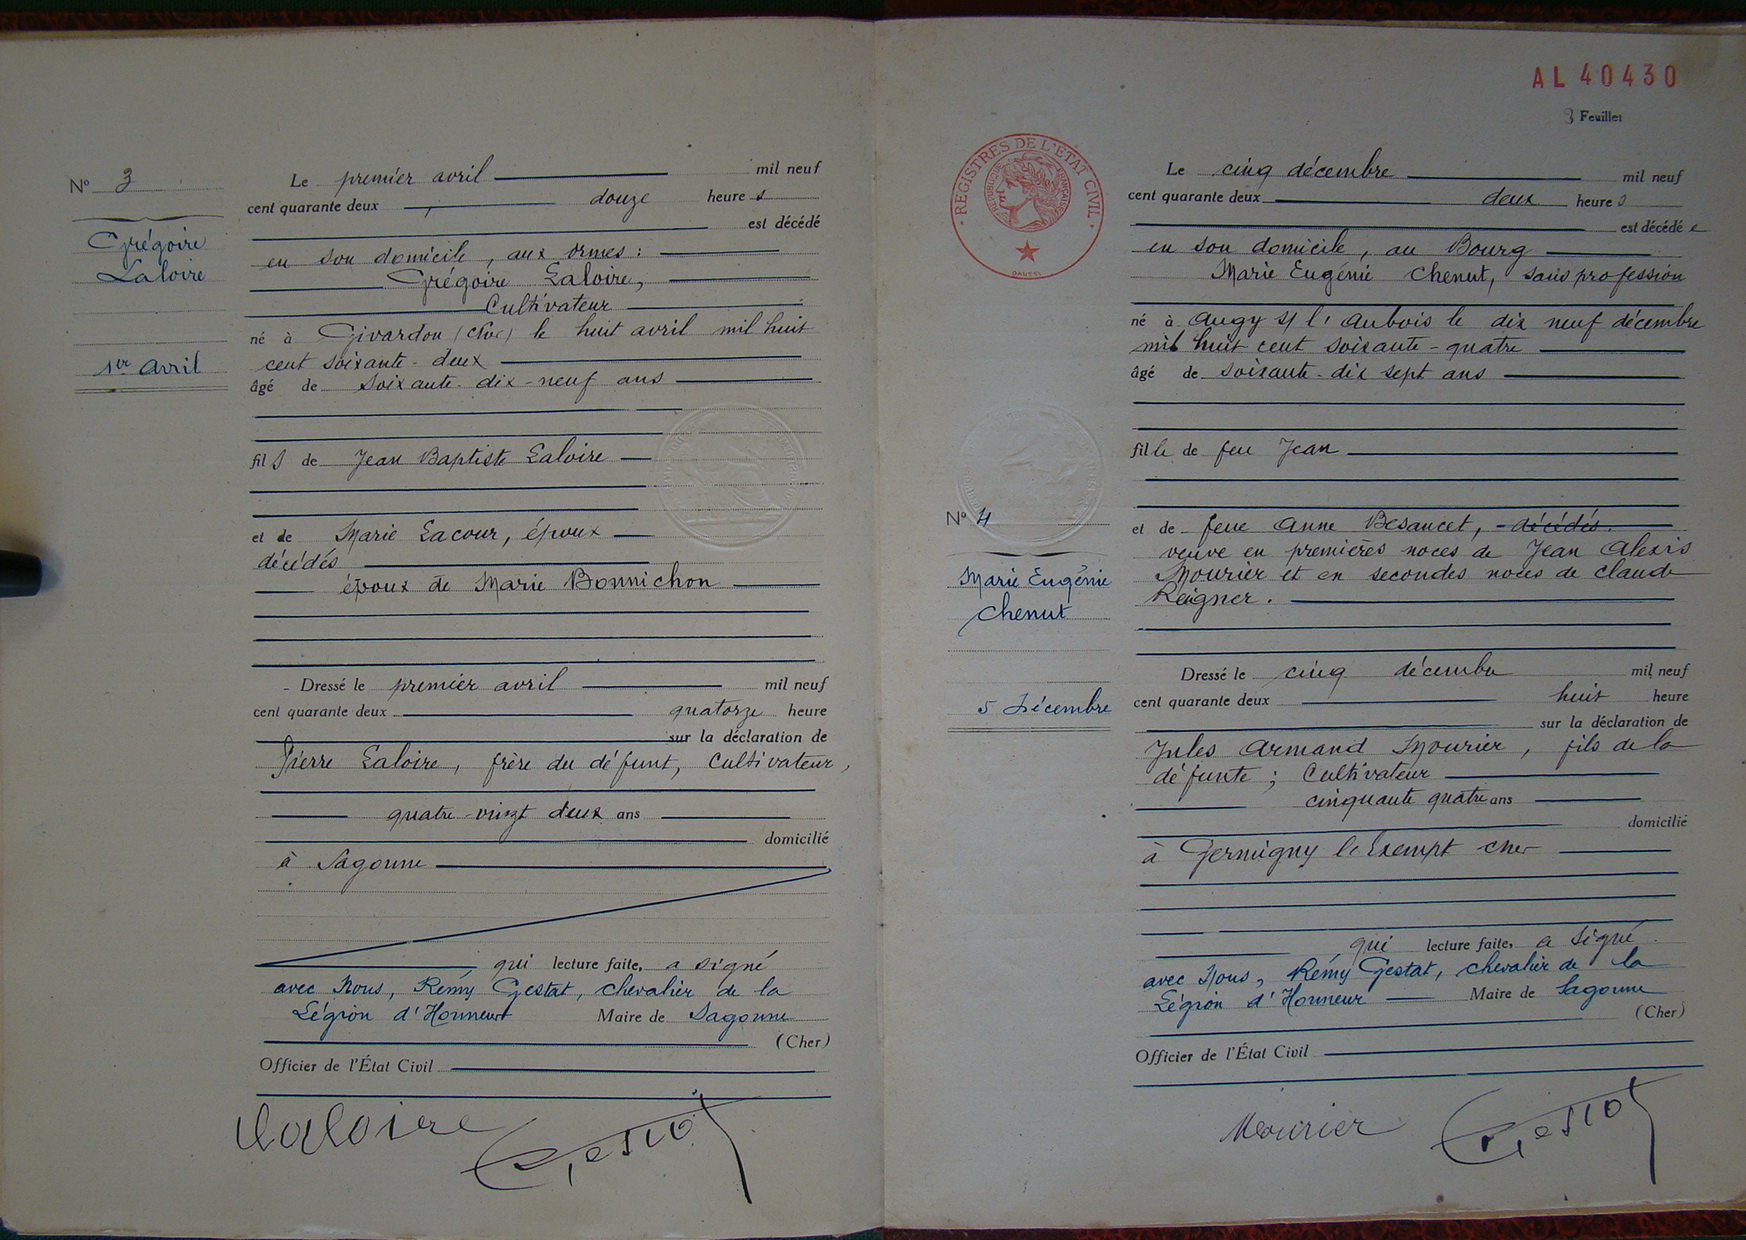 N° 3
Grégoire
Laloire
1er Avril
Le premier avril mil neuf
cent quarante deux, douze heures
est décédé
en son domicile, aux ormes :
Grégoire Laloire,
Cultivateur
né à Givardon (Cher) le huit avril mil huit
cent soixante-deux
âgé de soixante-dix-neuf ans
fils de Jean Baptiste Laloire
et de Marie Lacour, époux
décédés
époux de Marie Bonnichon
Dressé le premier avril mil neuf
cent quarante deux quatorze heure
sur la déclaration de
Pierre Laloire, frère du défunt, Cultivateur,
quatre-vingt deux ans
domicilié
à Sagonne
qui lecture faite, a signé
avec Nous, Rémy Gestat, chevalier de la
Légion d'Honneur Maire de Sagonne
(Cher)
Officier de l'État Civil
Laloire Gestat
AL 40430
3 Feuillet
REGISTRES DE L'ÉTAT CIVIL
RÉPUBLIQUE FRANÇAISE
N° 4
Marie Eugénie
Chenut
5 Décembre
Le cinq décembre mil neuf
cent quarante deux deux heures
est décédée
en son domicile, au Bourg
Marie Eugénie Chenut, sans profession
né à Augy s/ l'Aubois le dix neuf décembre
mil huit cent soixante-quatre
âgé de soixante-dix sept ans
fille de feu Jean
et de feue Anne Besancet, décédés.
veuve en premières noces de Jean Alexis
Mourier et en secondes noces de Claude
Reigner.
Dressé le cinq décembre mil neuf
cent quarante deux huit heure
sur la déclaration de
Jules Armand Mourier, fils de la
défunte ; Cultivateur
cinquante quatre ans
domicilié
à Germigny l'Exempt Cher
qui lecture faite, a signé.
avec Nous, Rémy Gestat, chevalier de la
Légion d'Honneur Maire de Sagonne
(Cher)
Officier de l'État Civil
Mourier Gestat